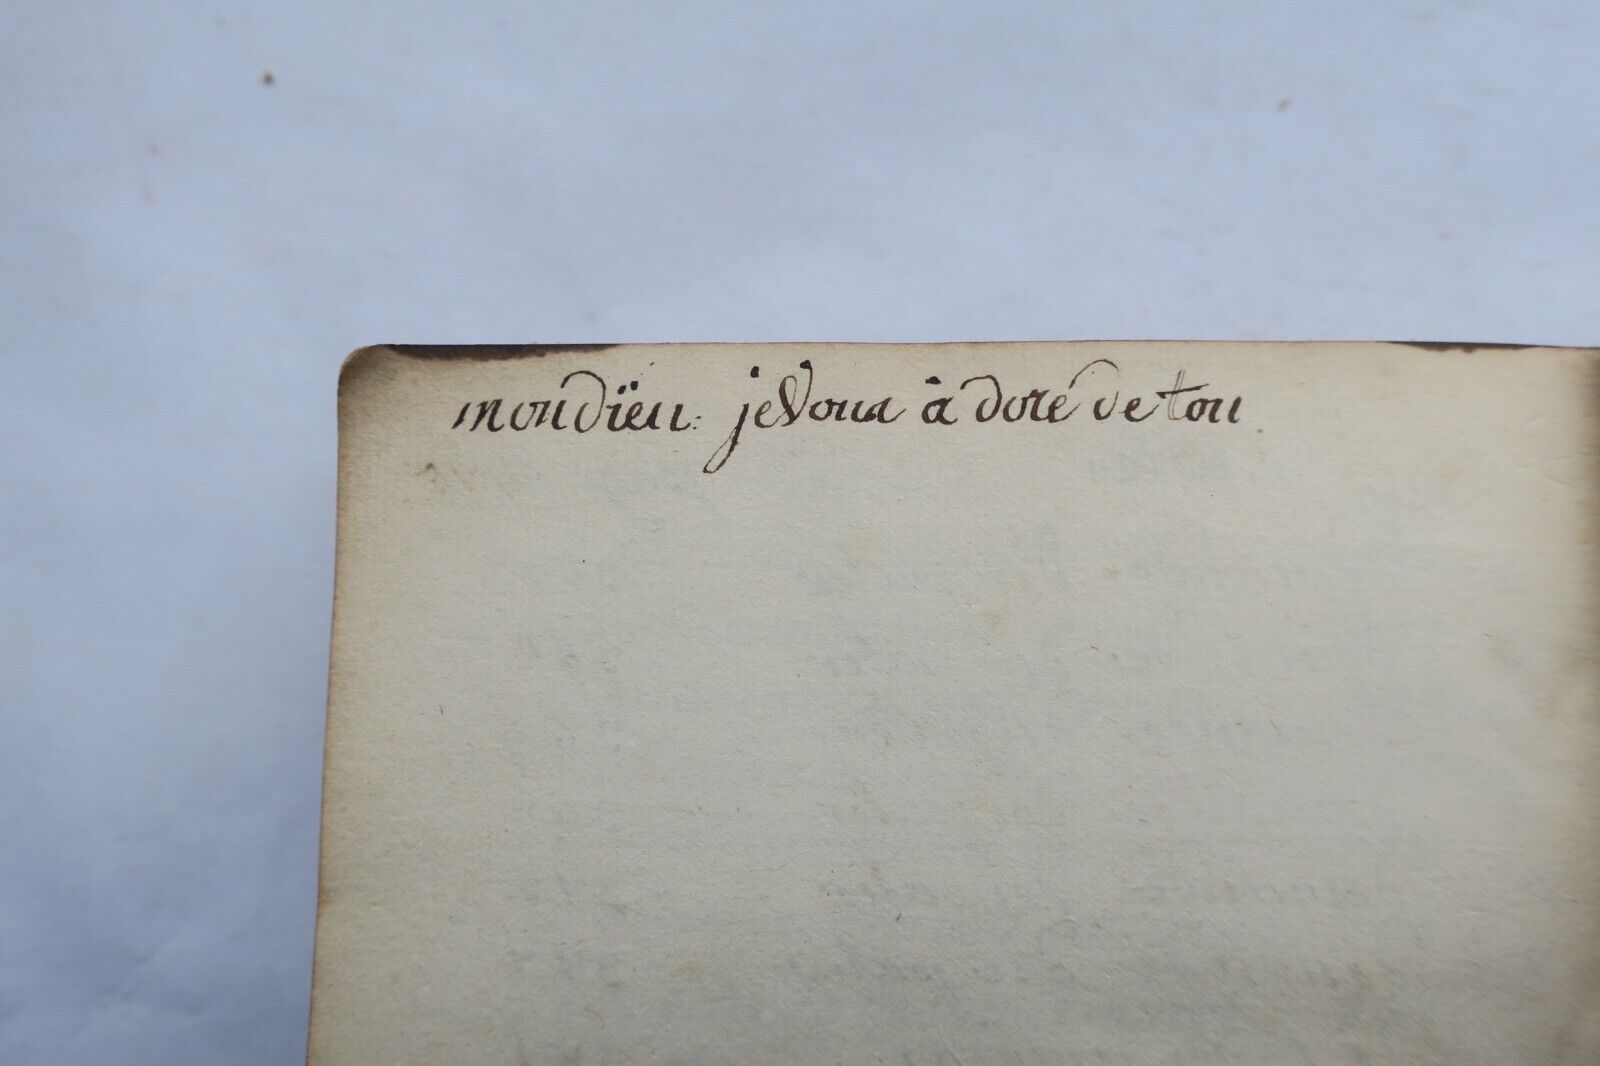 mondïeu: je Vous à doré de tou